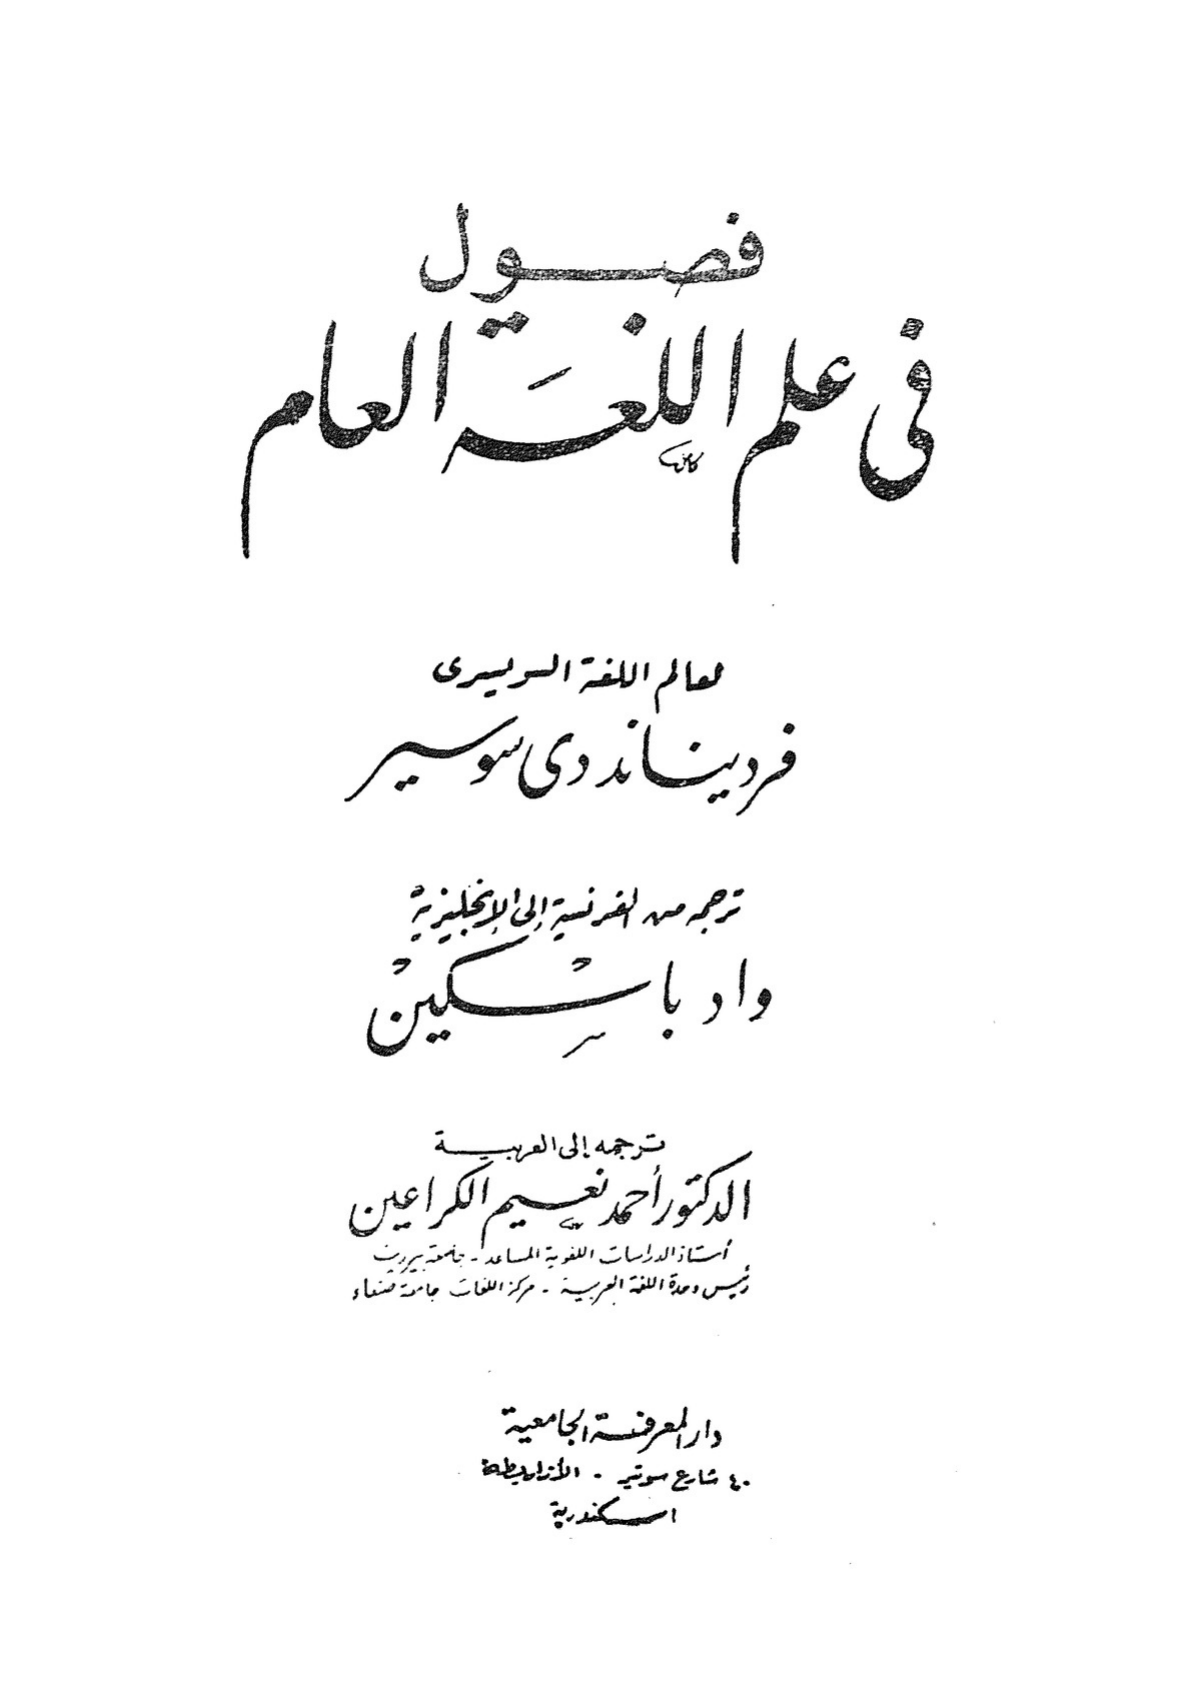 فصول
فى علم اللغة العام
لعالم اللغة السويسرى
فرديناند دى سوسير
ترجمه من الفرنسية إلى الإنجليزية
واد باسكين
ترجمه إلى العربية
الدكتور أحمد نعيم الكراعين
أستاذ الدراسات اللغوية المساعد - جامعة بيرزيت
رئيس وحدة اللغة العربية - مركز اللغات جامعة صنعاء
دار المعرفة الجامعية
٤٠ شارع سوتير - الأزاريطة
اسكندرية